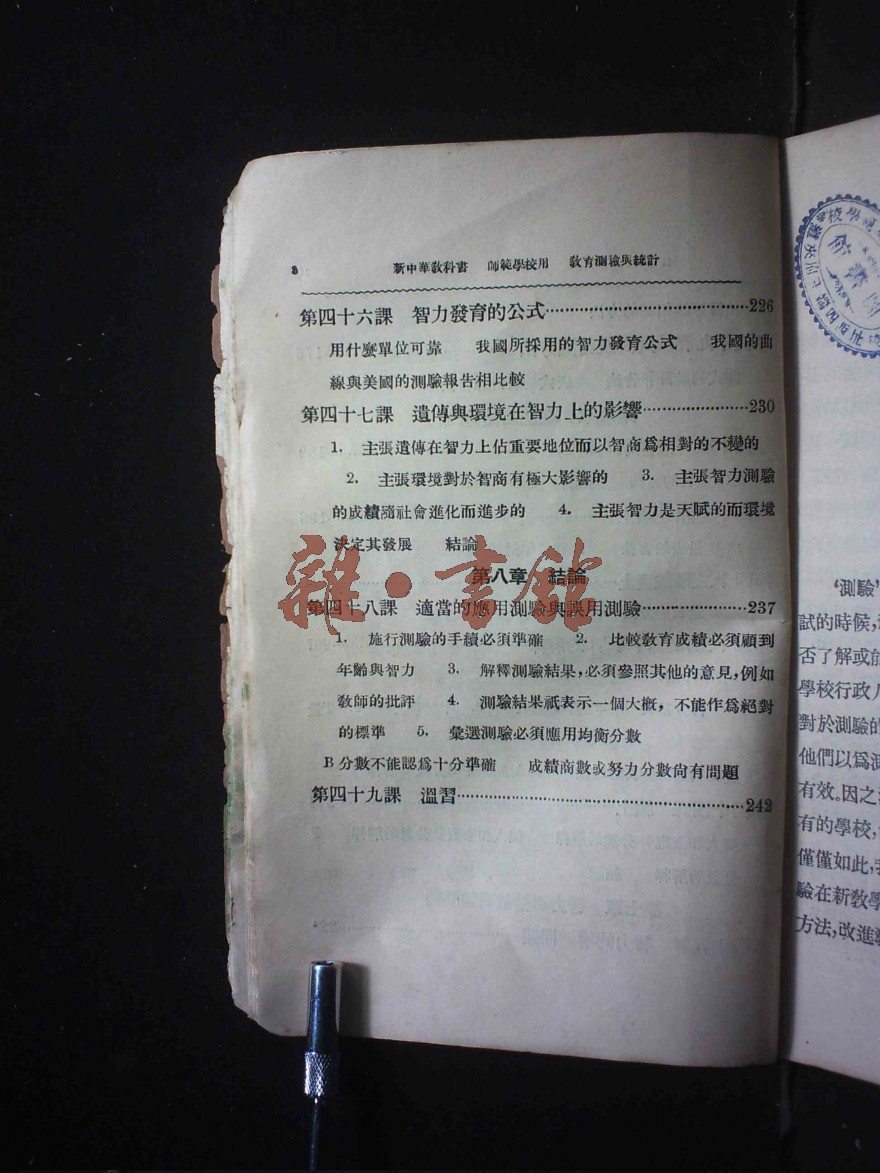 8 新中華教科書 師範學校用 教育測驗與統計
第四十六課 智力發育的公式……………………226
用什麼單位可靠 我國所採用的智力發育公式 我國的曲
線與美國的測驗報告相比較
第四十七課 遺傳與環境在智力上的影響……………230
1. 主張遺傳在智力上佔重要地位而以智商爲相對的不變的
2. 主張環境對於智商有極大影響的 3. 主張智力測驗
的成績隨社會進化而進步的 4. 主張智力是天賦的而環境
決定其發展 結論
第八章 結論
第四十八課 適當的應用測驗與誤用測驗……………237
1. 施行測驗的手續必須準確 2. 比較教育成績必須顧到
年齡與智力 3. 解釋測驗結果,必須參照其他的意見,例如
教師的批評 4. 測驗結果祇表示一個大槪,不能作爲絕對
的標準 5. 彙選測驗必須應用均衡分數
B分數不能認爲十分準確 成績商數或努力分數尙有問題
第四十九課 溫習………………………………………242
雜·書館
‘測驗’
試的時候,
否了解或能
學校行政人
對於測驗的
他們以爲測
有效。因之
有的學校,
僅僅如此,
驗在新教學
方法,改進